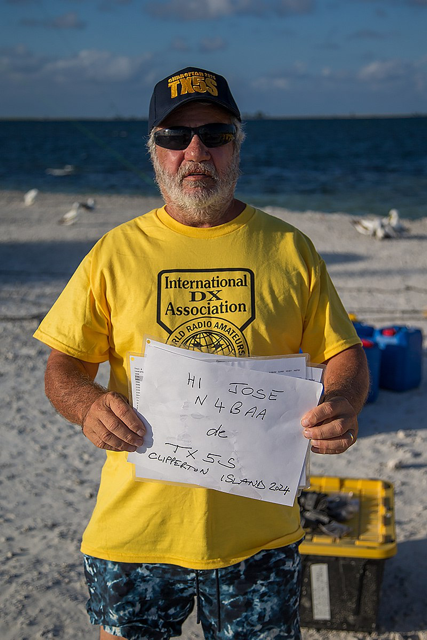 CLIPPERTON
TX5S
International
DX
Association
RLD RADIO AMATEURS
HI JOSE
N4BAA
de
TX5S
CLIPPERTON ISLAND 2024